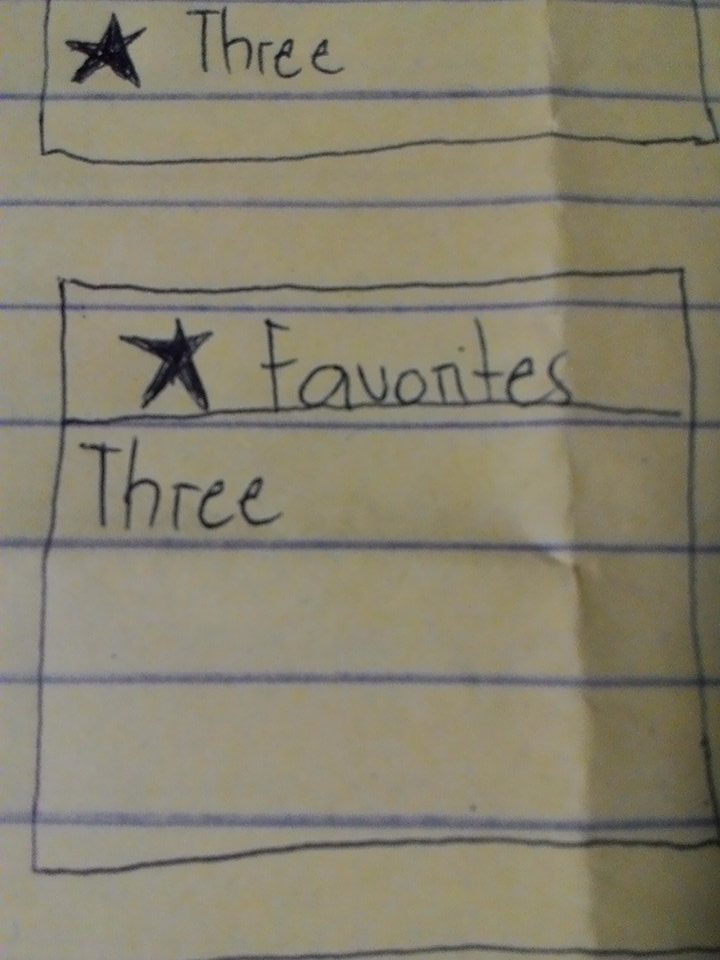 ★ Three
★ Favorites
Three